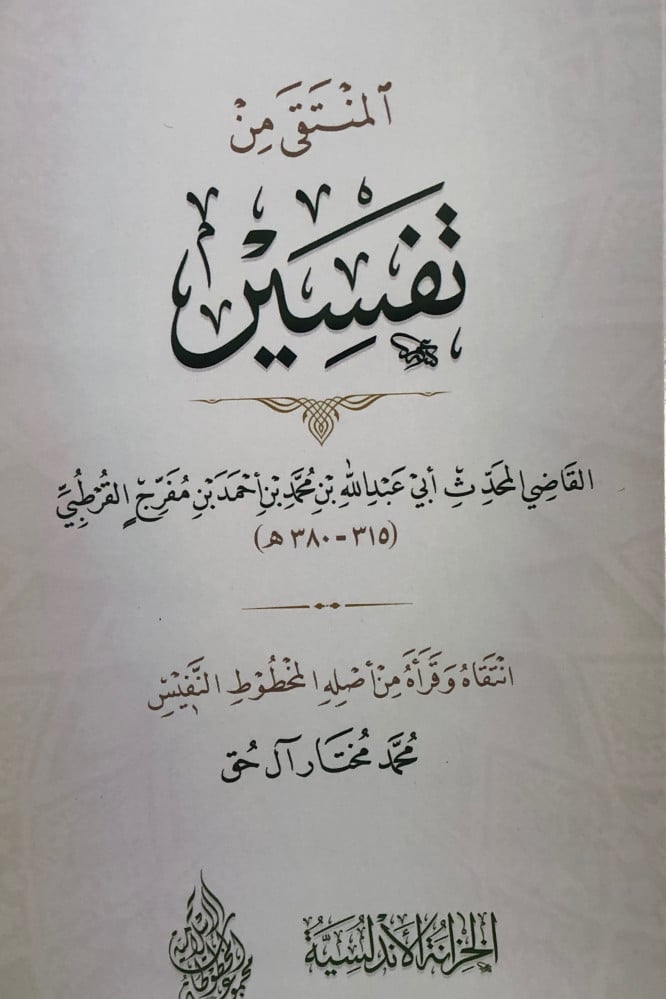 المنتقى من
تفسير
القاضي المحدث أبي عبد الله بن محمد بن أحمد بن مفرج القرطبي
(٣١٥ - ٣٨٠ هـ)
انتقاه وقرأه من أصله المخطوط النفيس
محمد مختار آل حق
الخزانة الأندلسية